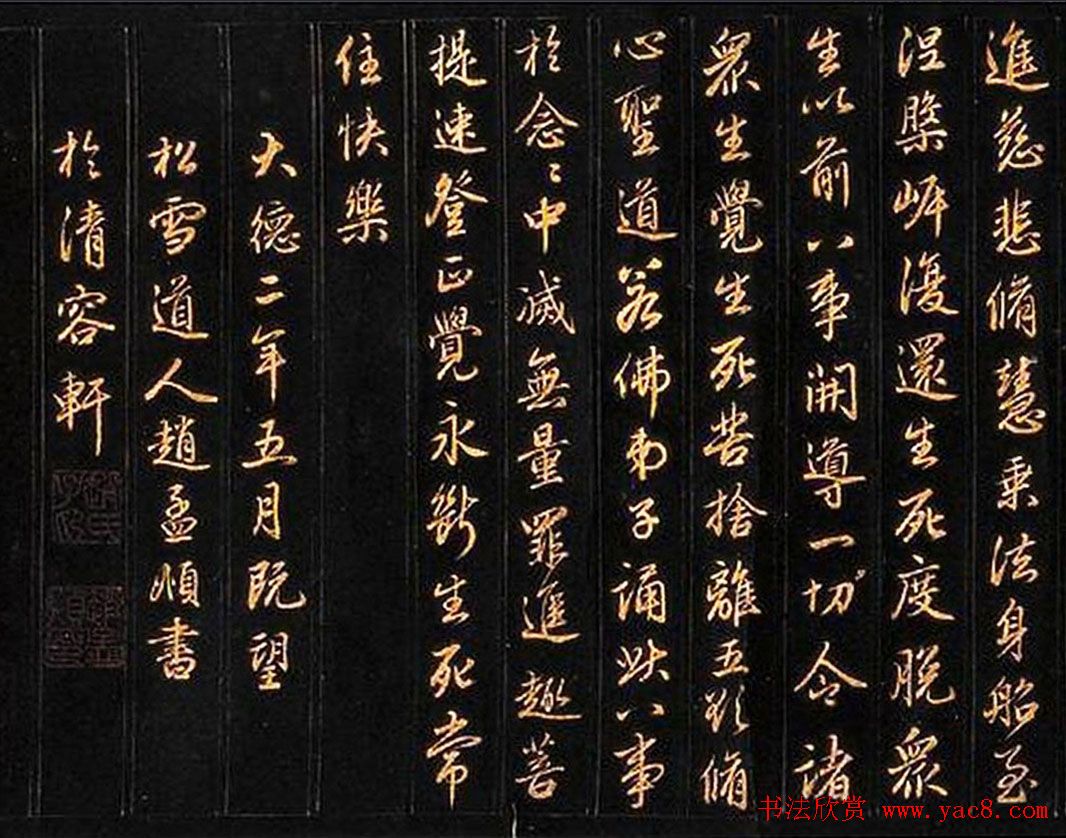 進慈悲脩慧乗法身船至
涅槃岸復還生死度脱衆
生以前八事開導一切令諸
衆生覺生死苦捨離五欲脩
心聖道若佛弟子誦此八事
於念〻中滅無量罪進趣菩
提速登正覺永断生死常
住快樂
大德二年五月既望
松雪道人趙孟頫書
於清容軒
书法欣赏 www.yac8.com